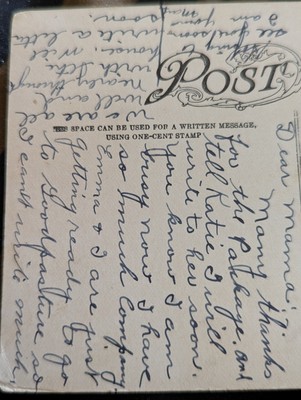 POST
THIS SPACE CAN BE USED FOR A WRITTEN MESSAGE,
USING ONE-CENT STAMP
Dear Mama:
Many thanks
for the package. and
tell Katie I will
write to her soon.
You know I am
busy now I have
so much Company.
Emma & I are just
getting ready to go
to Goodpasture so
I can't write much
we are all
well and
nearly through
with the
house, will
write a letter
soon.
hoping to
see you soon
I am your